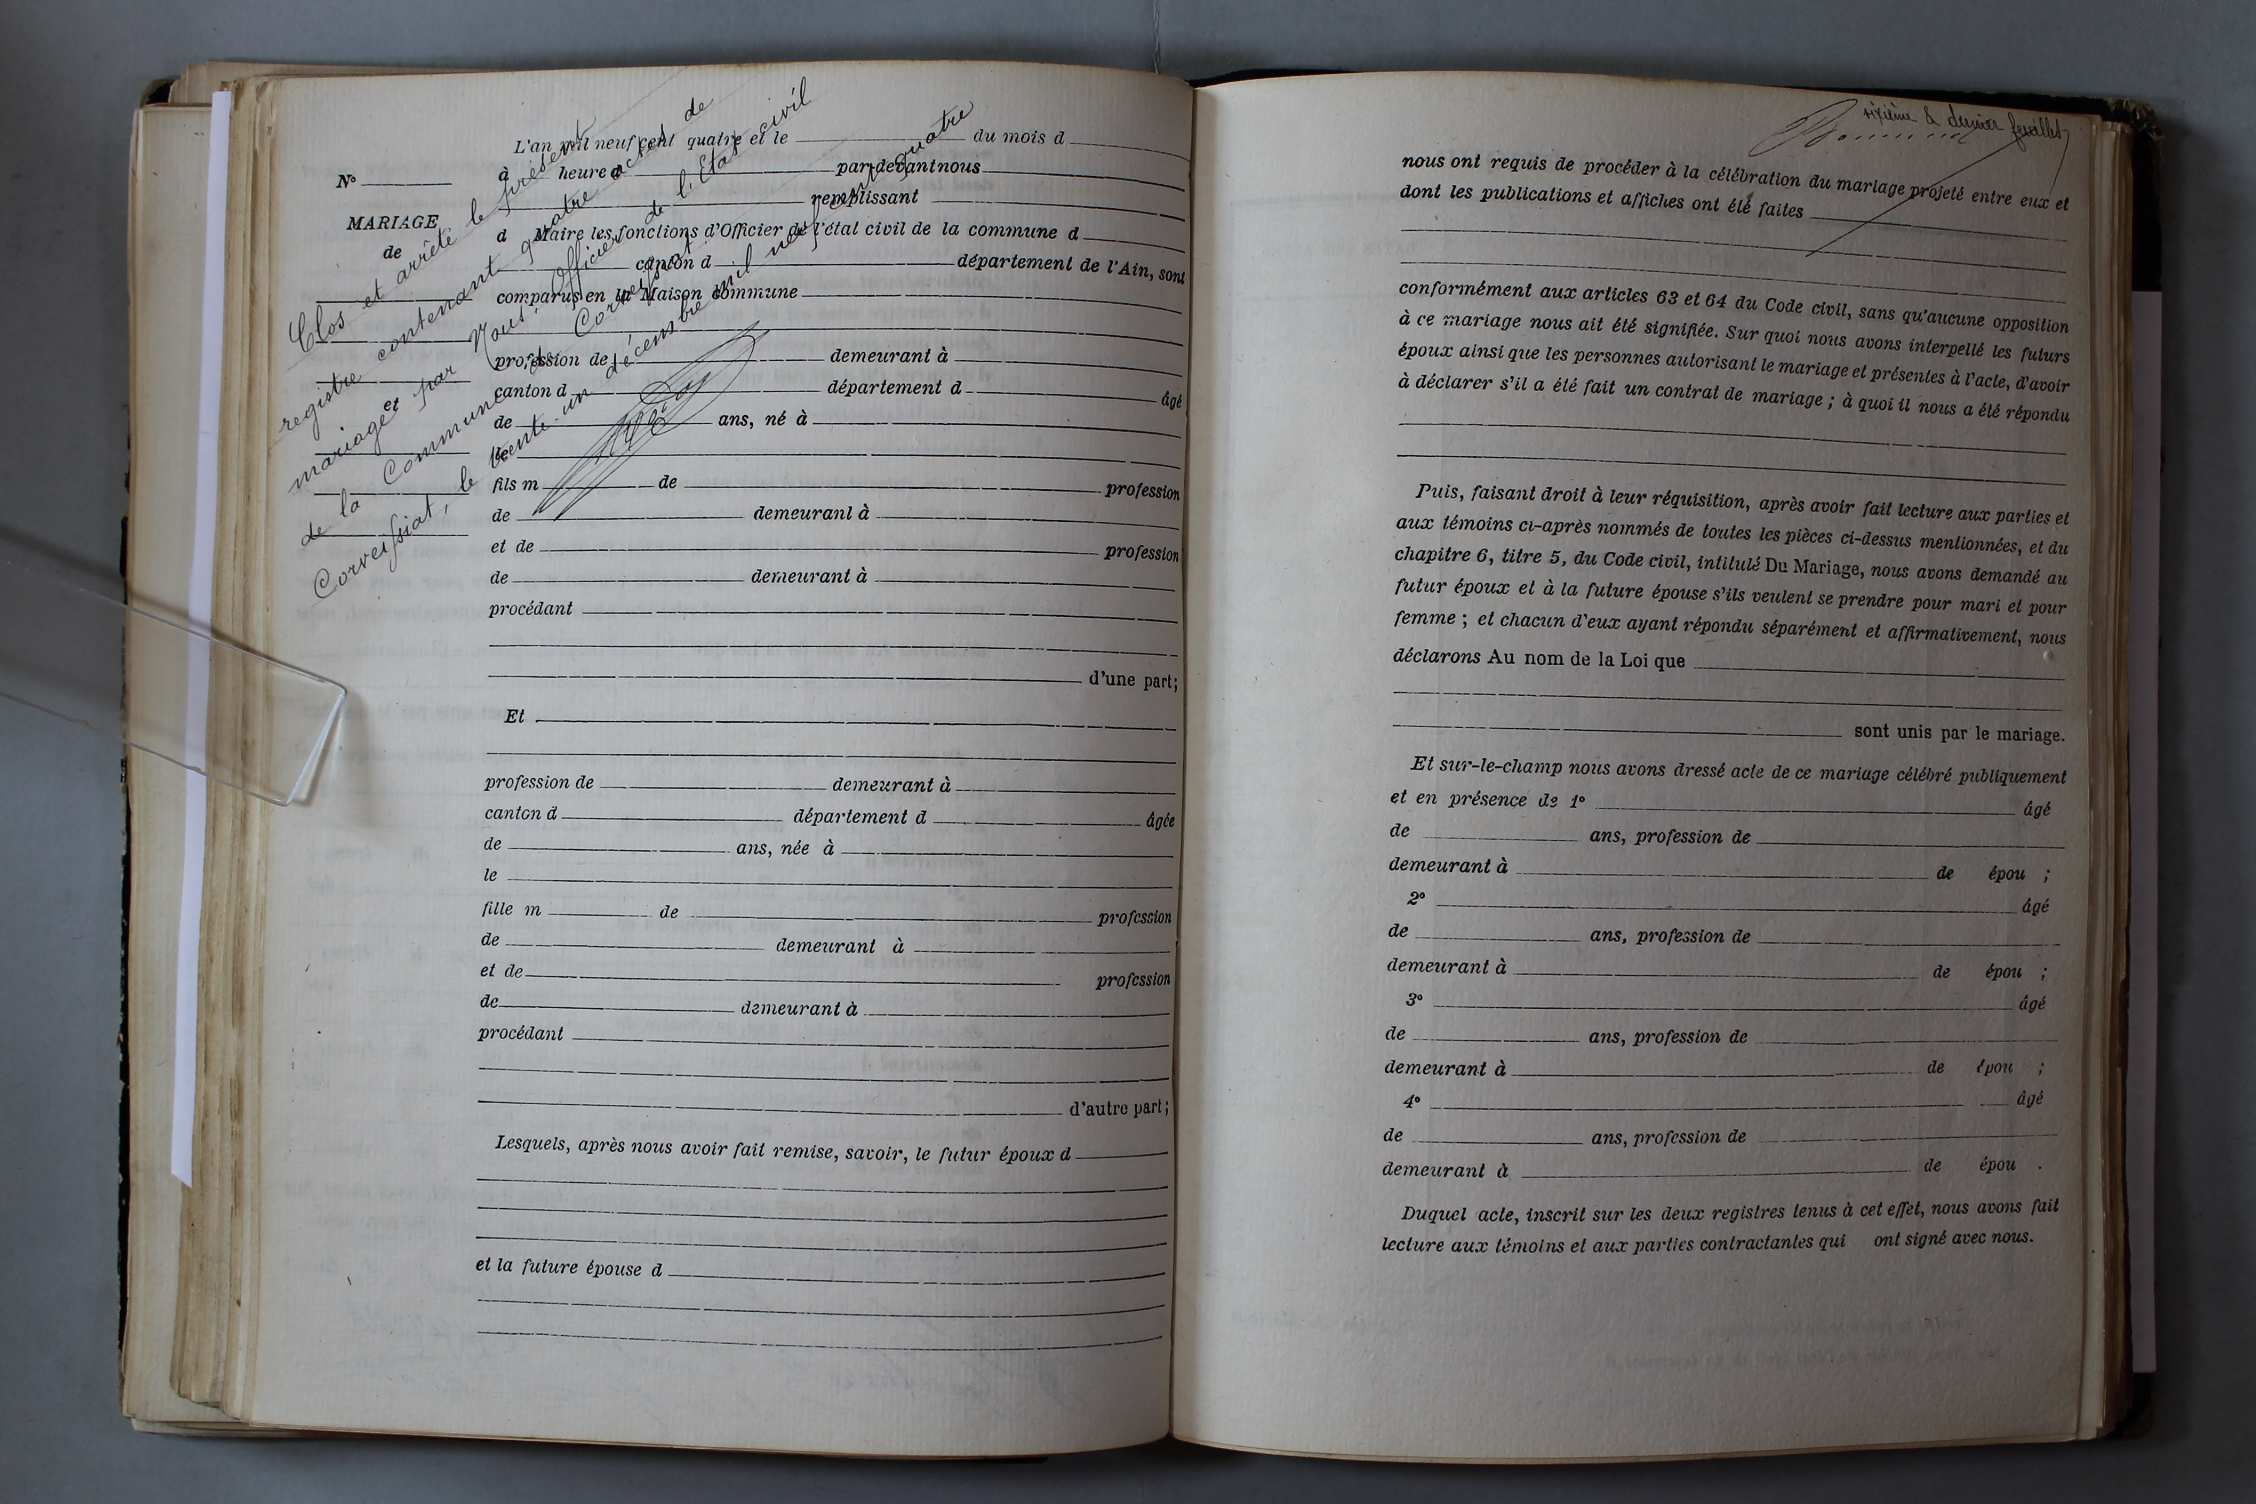 L'an mil neuf cent quatre et le du mois d
à heure d par devant nous
remplissant
d Maire les fonctions d'Officier de l'état civil de la commune d
canton d département de l'Ain, sont
comparus en la Maison commune
profession de demeurant à
canton d département d âgé
de ans, né à
le
fils m de profession
de demeurant à
et de profession
de demeurant à
procédant
d'une part;
Et
profession de demeurant à
canton d département d âgée
de ans, née à
le
fille m de profession
de demeurant à
et de profession
de demeurant à
procédant
d'autre part;
Lesquels, après nous avoir fait remise, savoir, le futur époux d
et la future épouse d
N°
MARIAGE
de
et
Clos et arrêté le présent
registre contenant quatre actes de
mariage par Nous, Officier de l'État civil
de la Commune de Corveissiat.
Corveissiat, le trente-un décembre mil neuf cent quatre
sixième & dernier feuillet
nous ont requis de procéder à la célébration du mariage projeté entre eux et
dont les publications et affiches ont été faites
conformément aux articles 63 et 64 du Code civil, sans qu'aucune opposition
à ce mariage nous ait été signifiée. Sur quoi nous avons interpellé les futurs
époux ainsi que les personnes autorisant le mariage et présentes à l'acte, d'avoir
à déclarer s'il a été fait un contrat de mariage ; à quoi il nous a été répondu
Puis, faisant droit à leur réquisition, après avoir fait lecture aux parties et
aux témoins ci-après nommés de toutes les pièces ci-dessus mentionnées, et du
chapitre 6, titre 5, du Code civil, intitulé Du Mariage, nous avons demandé au
futur époux et à la future épouse s'ils veulent se prendre pour mari et pour
femme ; et chacun d'eux ayant répondu séparément et affirmativement, nous
déclarons Au nom de la Loi que
sont unis par le mariage.
Et sur-le-champ nous avons dressé acte de ce mariage célébré publiquement
et en présence de 1° âgé
de ans, profession de
demeurant à de épou ;
2° âgé
de ans, profession de
demeurant à de épou ;
3° âgé
de ans, profession de
demeurant à de épou ;
4° âgé
de ans, profession de
demeurant à de épou .
Duquel acte, inscrit sur les deux registres tenus à cet effet, nous avons fait
lecture aux témoins et aux parties contractantes qui ont signé avec nous.